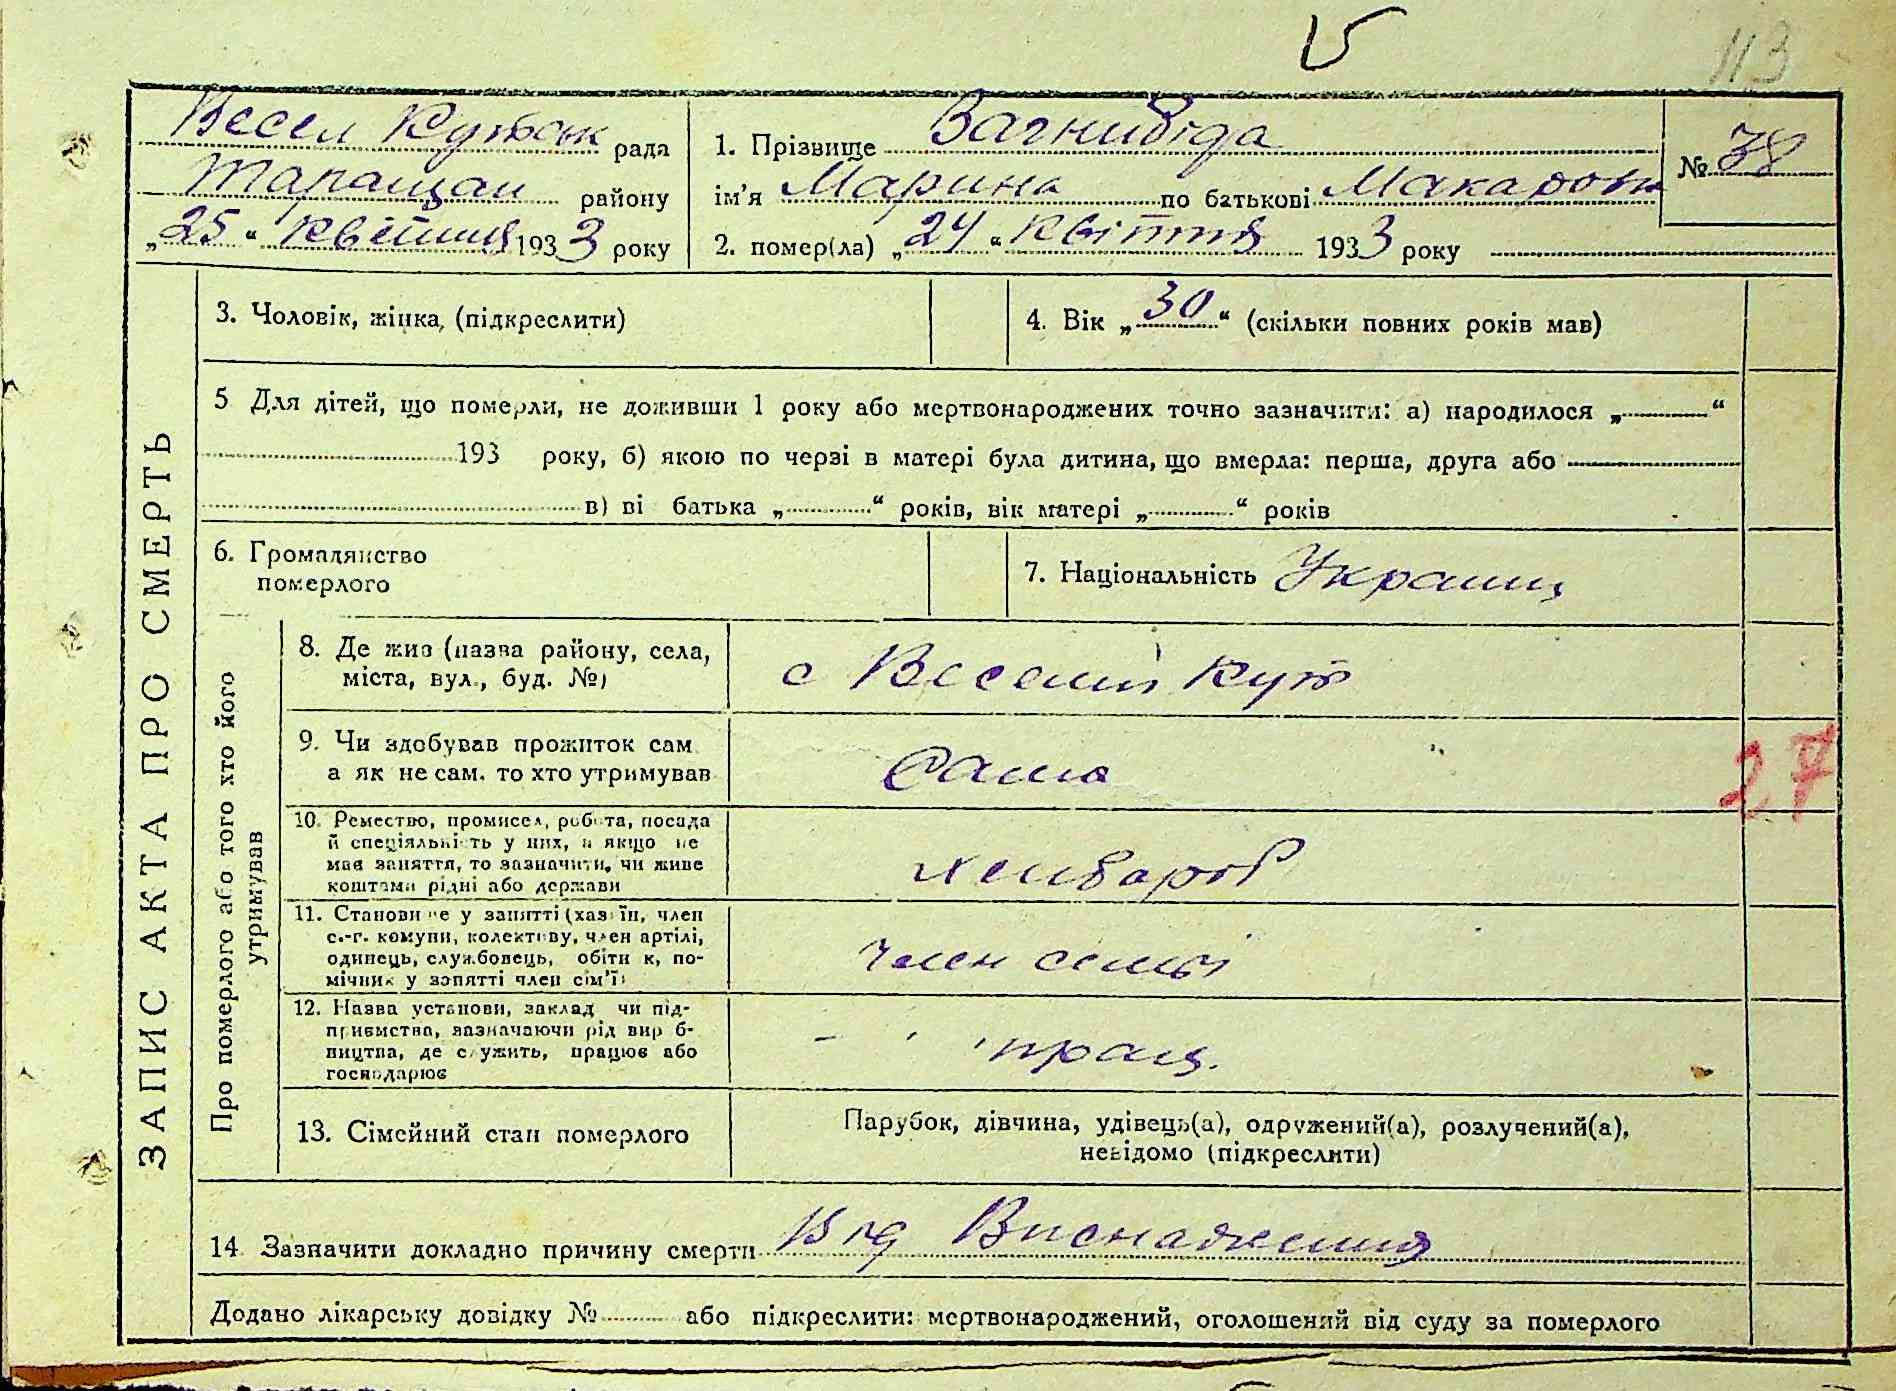 113
Весел Кутськ рада
Таращан району
„25“ квітня 1933 року
1. Прізвище Вагнибіда
ім'я Марина по батькові Макаровн
№ 38
2. помер(ла) „24“ квіття 1933 року
ЗАПИС АКТА ПРО СМЕРТЬ
3. Чоловік, жінка, (підкреслити)
4. Вік „30“ (скільки повних років мав)
5 Для дітей, що померли, не доживши 1 року або мертвонароджених точно зазначити: а) народилося „ “
193 року, б) якою по черзі в матері була дитина, що вмерла: перша, друга або
в) ві батька „ “ років, вік матері „ “ років
6. Громадянство
померлого
7. Національність Украинц
Про померлого або того хто його
утримував
8. Де жив (назва району, села,
міста, вул., буд. №)
с Веселий Кут
9. Чи здобував прожиток сам
а як не сам. то хто утримував
Сама
27
10. Ремество, промисел, робота, посада
й спеціяльність у них, а якщо не
має заняття, то зазначити, чи живе
коштами рідні або держави
хлибароб
11. Становище у занятті (хазяїн, член
с.-г. комуни, колективу, член артілі,
одинець, службовець, обітник, по-
мічник у занятті член сім'ї)
член семьї
12. Назва установи, заклад чи під-
приємства, зазначаючи рід вироб-
ництва, де служить, працює або
господарює
- прац.
13. Сімейний стан померлого
Парубок, дівчина, удівець(а), одружений(а), розлучений(а),
невідомо (підкреслити)
14. Зазначити докладно причину смерти Від Виснаження
Додано лікарську довідку № або підкреслити: мертвонароджений, оголошений від суду за померлого